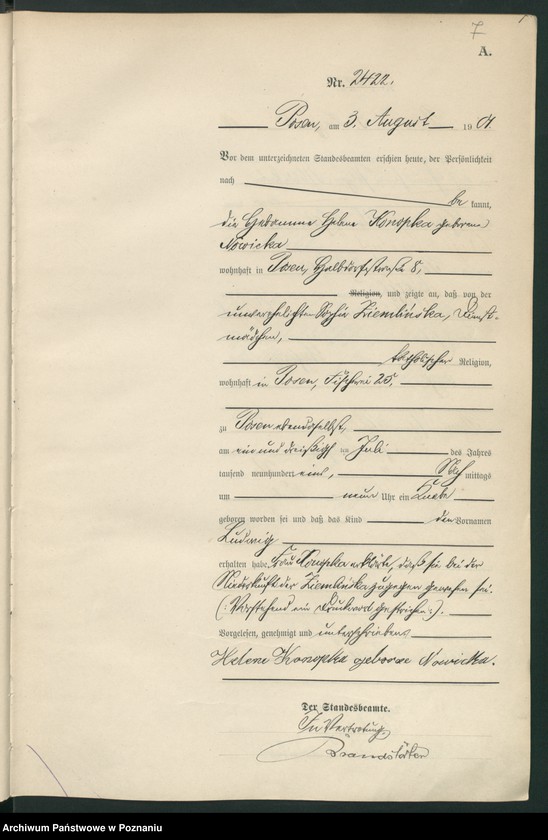 7
A.
Nr. 2422.
Posen, am 3. August 1901.
Vor dem unterzeichneten Standesbeamten erschien heute, der Persönlichkeit
nach be kannt,
die Hebamme Helene Konopka geborene
Nowicka
wohnhaft in Posen, Halbdorfstrasse 8,
Religion, und zeigte an, daß von der
unverehelichten Sophie Ziemlinska, Dienst-
mädchen,
katholischer Religion,
wohnhaft in Posen, Fischerei 25,
zu Posen ebendaselbst,
am ein und dreißigsten Juli des Jahres
tausend neunhundert eins, Nach mittags
um neun Uhr ein Knabe
geboren worden sei und daß das Kind den Vornamen
Ludwig
erhalten habe. Frau Konopka erklärte, daß sie bei der
Niederkunft der Ziemlinska zugegen gewesen sei.
(: Vorstehend ein Druckwort gestrichen :).
Vorgelesen, genehmigt und unterschrieben
Helene Konopka geborene Nowicka.
Der Standesbeamte.
In Vertretung
Archiwum Państwowe w Poznaniu